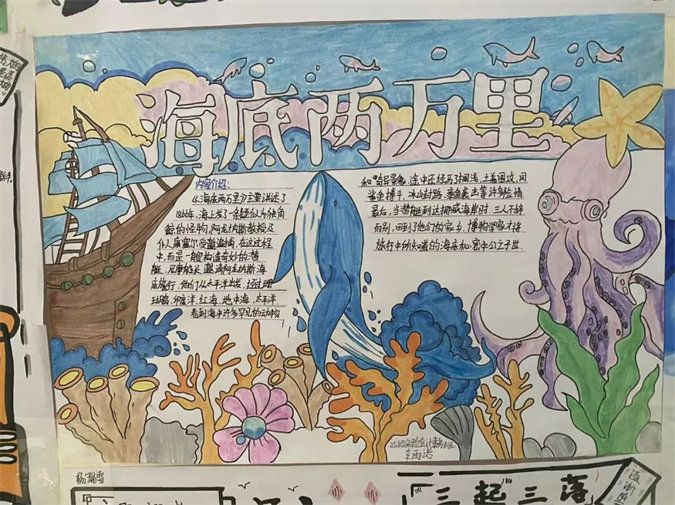 海底两万里
内容介绍:
《海底两万里》主要讲述了
1866年,海上发了一条疑似为独角
鲸的怪物,阿龙纳斯教授及
仆人康塞尔受邀追捕,在这过程
中,而是一艘构造奇妙的潜
艇,尼摩船长邀请阿龙纳斯海
底旅行,他们从太平洋出发,经过珊
瑚岛,印度洋,红海,地中海,大西洋
看到海中许多罕见的动物
和
途中还经历了搁浅,土著围攻,同
鲨鱼搏斗,冰山封路,章鱼袭击等许多险情
最后,当潜艇到达挪威海岸时,三人不辞
而别,回到了他们的家乡,博物学家才将
旅行中所知道的海底秘密公之于世.
三起三落